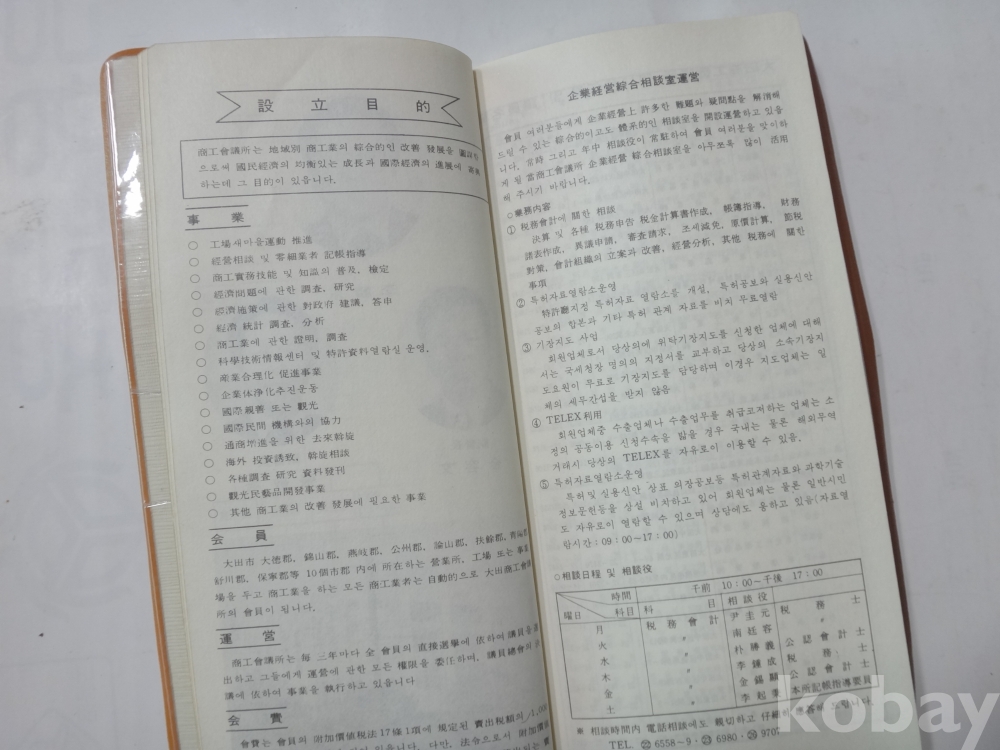 設立目的
商工會議所는 地域別 商工業의 綜合的인 改善 發展을 圖謀함
으로써 國民經濟의 均衡있는 成長과 國際經濟의 進展에
하는데 그 目的이 있읍니다.
事業
○ 工場새마을運動 推進
○ 經營相談 및 零細業者 記帳指導
○ 商工實務技能 및 知識의 普及, 檢定
○ 經濟問題에 관한 調査, 硏究
○ 經濟施策에 관한 對政府 建議, 答申
○ 經濟 統計 調査, 分析
○ 商工業에 관한 證明, 調査
○ 科學技術情報센터 및 特許資料열람실 운영.
○ 産業合理化 促進事業
○ 企業体淨化추진운동
○ 國際親善 또는 觀光
○ 國際民間 機構와의 協力
○ 通商增進을 위한 去來斡旋
○ 海外 投資誘致, 斡旋相談
○ 各種調査 硏究 資料發刊
○ 觀光民藝品開發事業
○ 其他 商工業의 改善 發展에 필요한 事業
会員
大田市 大德郡, 錦山郡, 燕岐郡, 公州郡, 論山郡, 扶餘郡, 靑陽郡
舒川郡, 保寧郡等 10個市郡 內에 所在하는 營業所, 工場 또는 事業
場을 두고 商工業을 하는 모든 商工業者는 自動的으로 大田商工會議
所의 會員이 됩니다.
運営
商工會議所는 每 三年마다 全 會員의 直接選擧에 依하여 議員을 選
出하고 그들에게 運營에 관한 모든 權限을 委任하며, 議員總會의
議에 依하여 事業을 執行하고 있읍니다
会費
會費는 會員의 附加價値稅法 17條 1項에 規定된 賣出稅額의 /1,000
있읍니다. 다만, 法令으로서 附加價
企業経営綜合相談室運営
會員 여러분들에게 企業經營上 許多한 難題와 疑問點을 解消해
드릴 수 있는 綜合的이고도 體系的인 相談室을 開設運營하고 있읍
니다. 常時 그리고 年中 相談役이 常駐하여 會員 여러분을 맞이하
게 될 當商工會議所 企業經營 綜合相談室을 아무쪼록 많이 活用
해 주시기 바랍니다.
○業務内容
① 稅務會計에 關한 相談
決算 및 各種 稅務申告 税金計算書作成, 帳簿指導, 財務
諸表作成, 異議申請, 審査請求, 조세減免, 原價計算, 節税
對策, 會計組織의 立案과 改善, 經營分析, 其他 稅務에 關한
事項
② 특허자료열람소운영
特許廳지정 특허자료 열람소를 개설, 특허공보와 실용신안
공보의 합본과 기타 특허 관계 자료를 비치 무료열람
③ 기장지도 사업
회원업체로서 당상의에 위탁기장지도를 신청한 업체에 대해
서는 국세청장 명의의 지정서를 교부하고 당상의 소속기장지
도요원이 무료로 기장지도를 담당하며 이경우 지도업체는 일
체의 세무간섭을 받지 않음
④ TELEX利用
회원업체중 수출업체나 수출업무를 취급코저하는 업체는 소
정의 공동이용 신청수속을 밟을 경우 국내는 물론 해외무역
거래시 당상의 TELEX를 자유로이 이용할 수 있음.
⑤ 특허자료열람소운영
특허및 실용신안 상표 의장공보등 특허관계자료와 과학기술
정보문헌등을 상설 비치하고 있어 회원업체는 물론 일반시민
도 자유로이 열람할 수 있으며 상담에도 응하고 있음(자료열
람시간: 09:00~17:00)
○相談日程 및 相談役
時間 千前 10:00~千後 17:00
曜日 科目 科目 相談役
月 税務會計 尹圭元 税務士
火 〃 南廷容 〃
水 〃 朴勝義 公認會計士
木 〃 李鍾成 税務士
金 〃 金錫 公認會計士
土 〃 李起 本所記帳指導委員
※ 相談時間內 電話相談에도 親切하고 仔細히 應答해 드립니다.
TEL. ㉒ 6558~9·㉓ 6980·㉖ 970
kobay